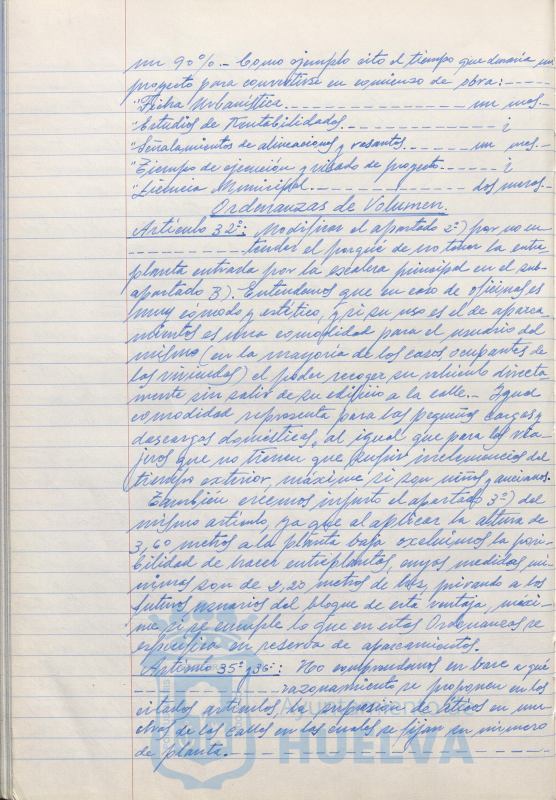 un 90%.- Como ejemplo cito el tiempo que duraría un
proyecto para convertirse en comienzo de obra:-----
"Ficha Urbanística.------------------ un mes.-
"Estudios de Rentabilidades.-------------- i
"Señalamientos de alineaciones y rasantes.------ un mes.-
"Tiempo de ejecución y visado de proyecto.----- i
"Licencia Municipal.------------- dos meses.-
Ordenanzas de Volumen.
Artículo 32º: Modificar el apartado 2º) por no en-
---------- tender el porqué de no tener la entre
planta entrada por la escalera principal en el sub-
apartado B). Entendemos que en caso de oficinas es
muy cómodo y estético, y si su uso es el de aparca-
mientos es una comodidad para el usuario del
mismo (en la mayoría de los casos ocupantes de
las viviendas) el poder recoger su vehículo directa-
mente sin salir de su edificio a la calle.- Igual
comodidad representa para las pequeñas cargas y
descargas domésticas, al igual que para los via-
jeros que no tienen que sufrir inclemencias del
tiempo exterior, máxime si son niños y ancianos.
También creemos injusto el apartado 3º) del
mismo artículo, ya que al aplicar la altura de
3,60 metros a la planta baja excluimos la posi-
bilidad de hacer entreplantas, cuyas medidas mí-
nimas son de 2,20 metros de luz, privando a los
futuros usuarios del bloque de esta ventaja, máxi-
me si se cumple lo que en estas Ordenanzas se
especifica en reserva de aparcamientos.
Artículo 35º y 36º: No comprendemos en base a qué
---------- razonamiento se proponen en los
citados artículos, la supresión de áticos en mu-
chas de las calles en las cuales se fijan su número
de planta.-
Ayuntamiento de
HUELVA